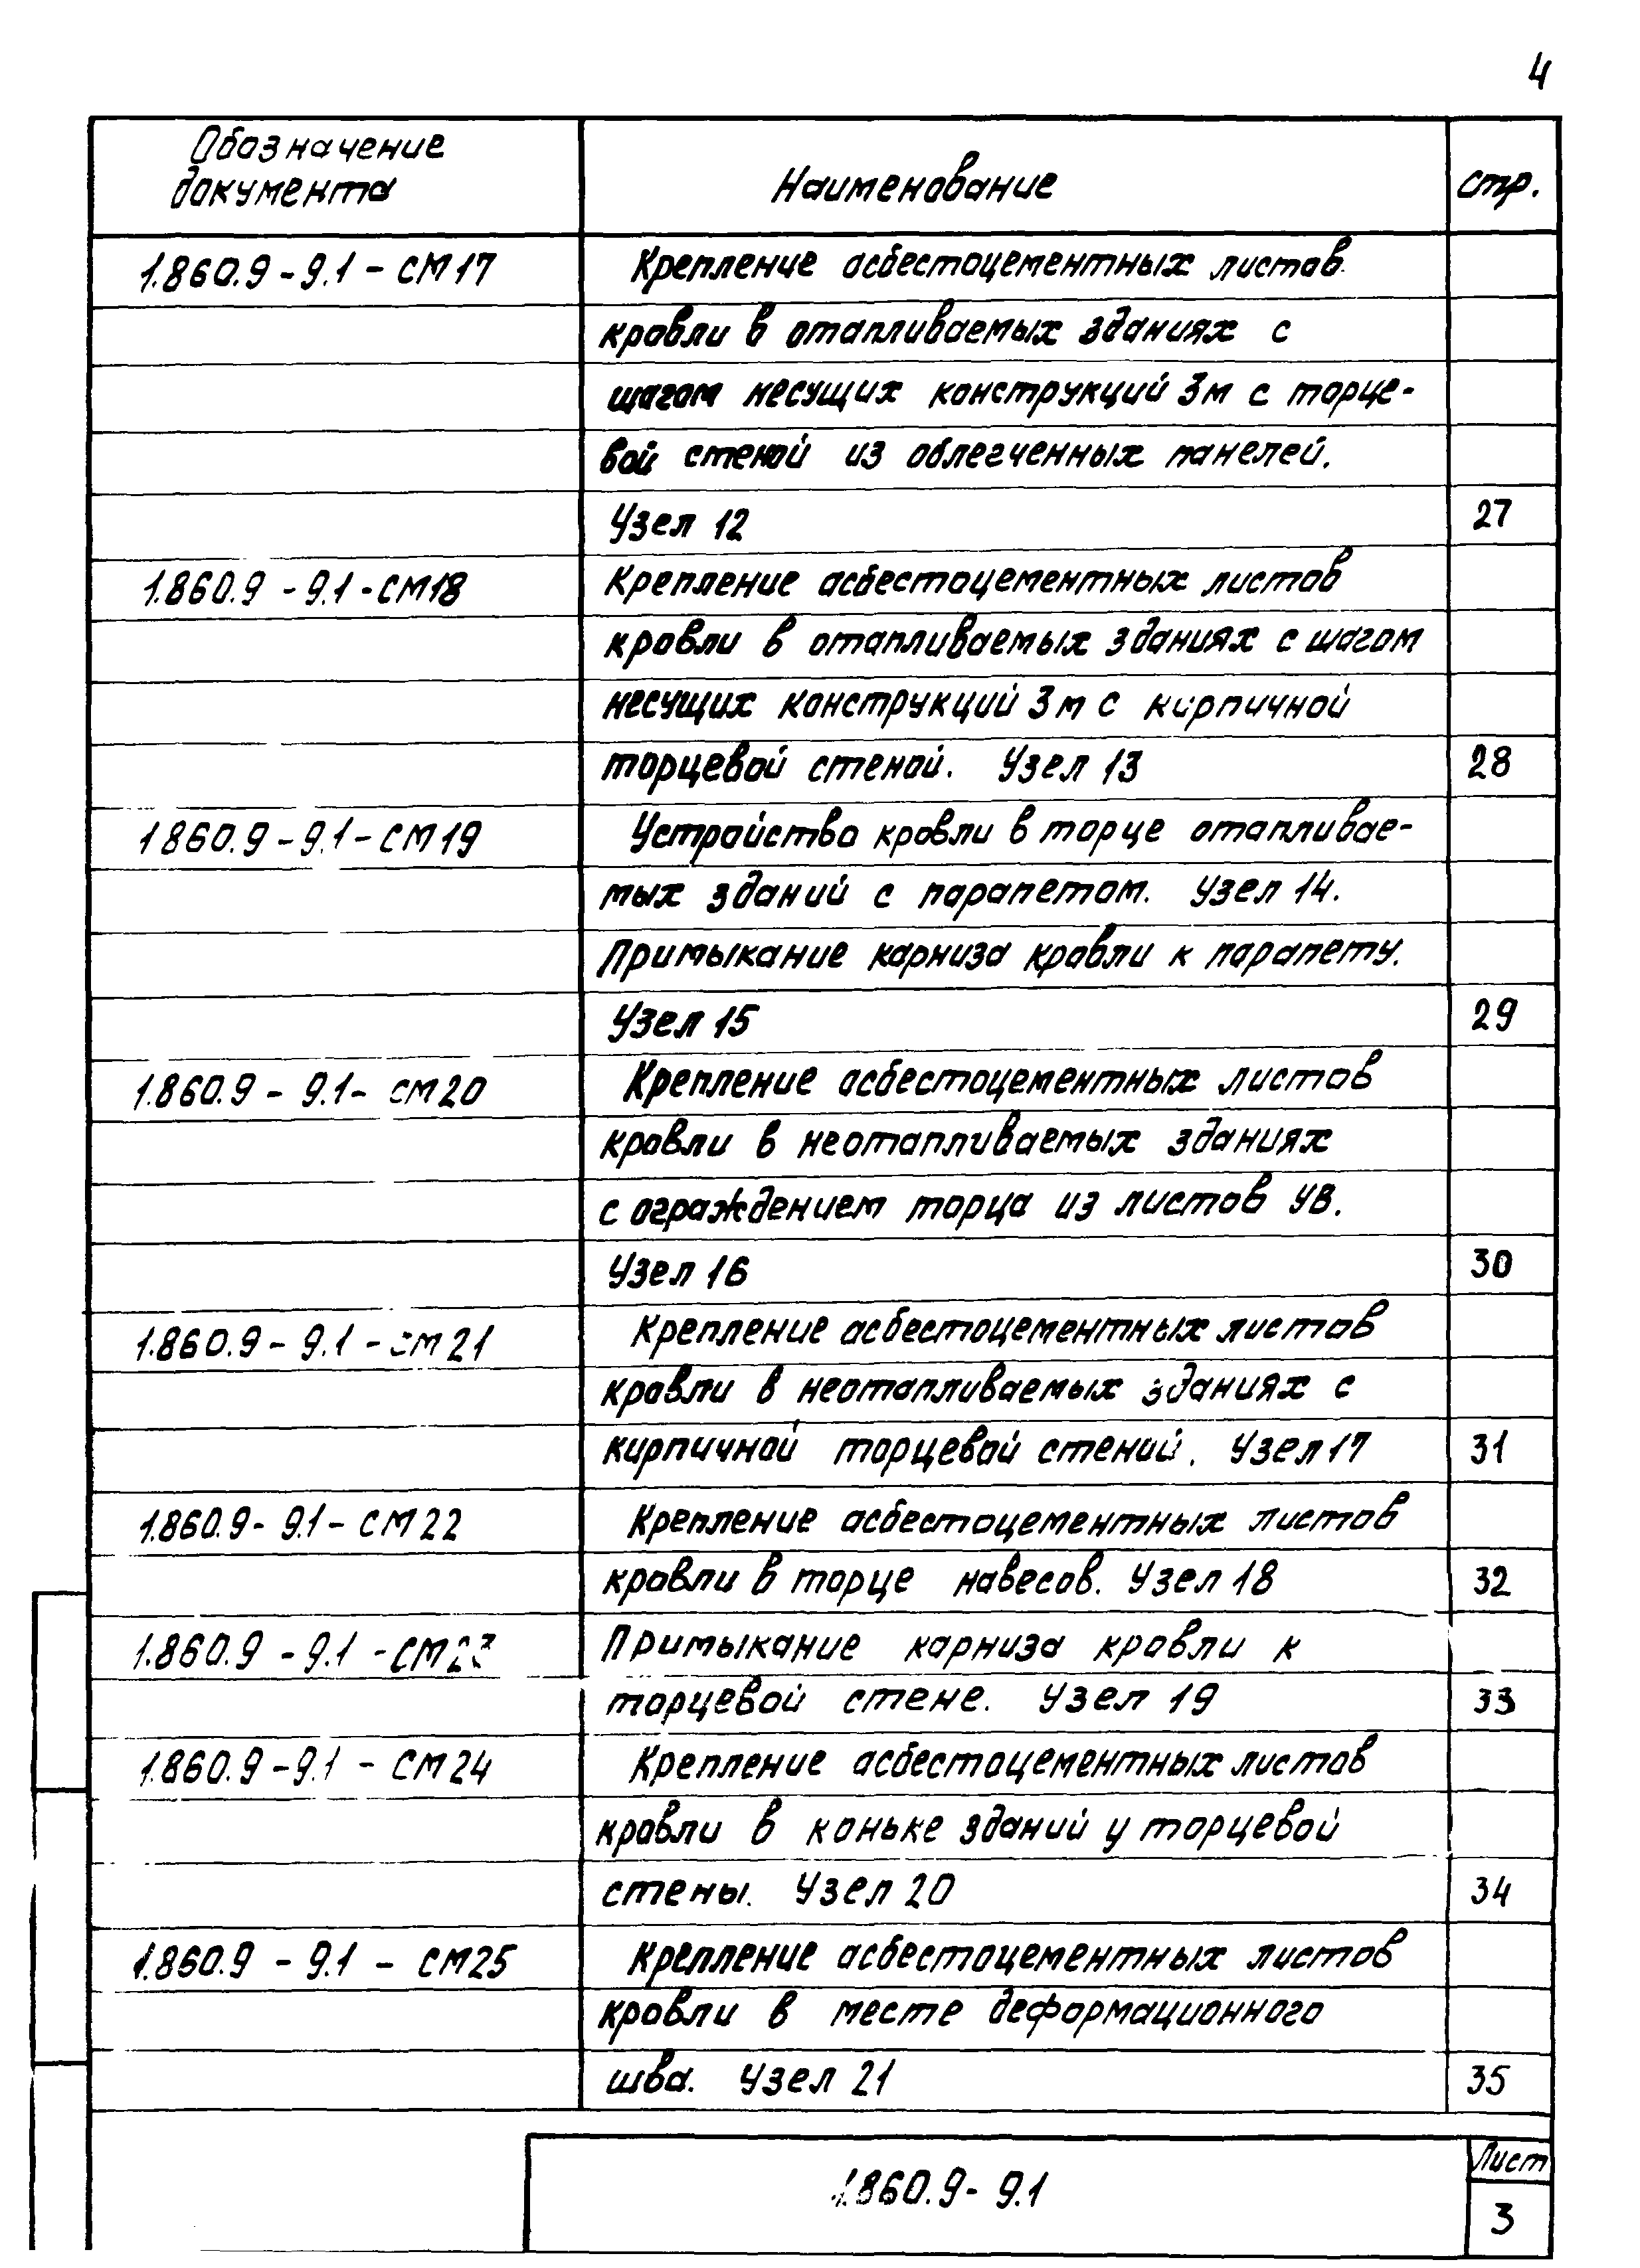 4
Обозначение
документа
Наименование
стр.
1.860.9-9.1-СМ17 Крепление асбестоцементных листов
кровли в отапливаемых зданиях с
шагом несущих конструкций 3м с торце-
вой стеной из облегченных панелей.
Узел 12 27
1.860.9-9.1-СМ18 Крепление асбестоцементных листов
кровли в отапливаемых зданиях с шагом
несущих конструкций 3м с кирпичной
торцевой стеной. Узел 13 28
1.860.9-9.1-СМ19 Устройство кровли в торце отапливае-
мых зданий с парапетом. Узел 14.
Примыкание карниза кровли к парапету.
Узел 15 29
1.860.9-9.1-СМ20 Крепление асбестоцементных листов
кровли в неотапливаемых зданиях
с ограждением торца из листов УВ.
Узел 16 30
1.860.9-9.1-СМ21 Крепление асбестоцементных листов
кровли в неотапливаемых зданиях с
кирпичной торцевой стеной. Узел 17 31
1.860.9-9.1-СМ22 Крепление асбестоцементных листов
кровли в торце навесов. Узел 18 32
1.860.9-9.1-СМ23 Примыкание карниза кровли к
торцевой стене. Узел 19 33
1.860.9-9.1-СМ24 Крепление асбестоцементных листов
кровли в коньке зданий у торцевой
стены. Узел 20 34
1.860.9-9.1-СМ25 Крепление асбестоцементных листов
кровли в месте деформационного
шва. Узел 21 35
1.860.9-9.1
Лист
3